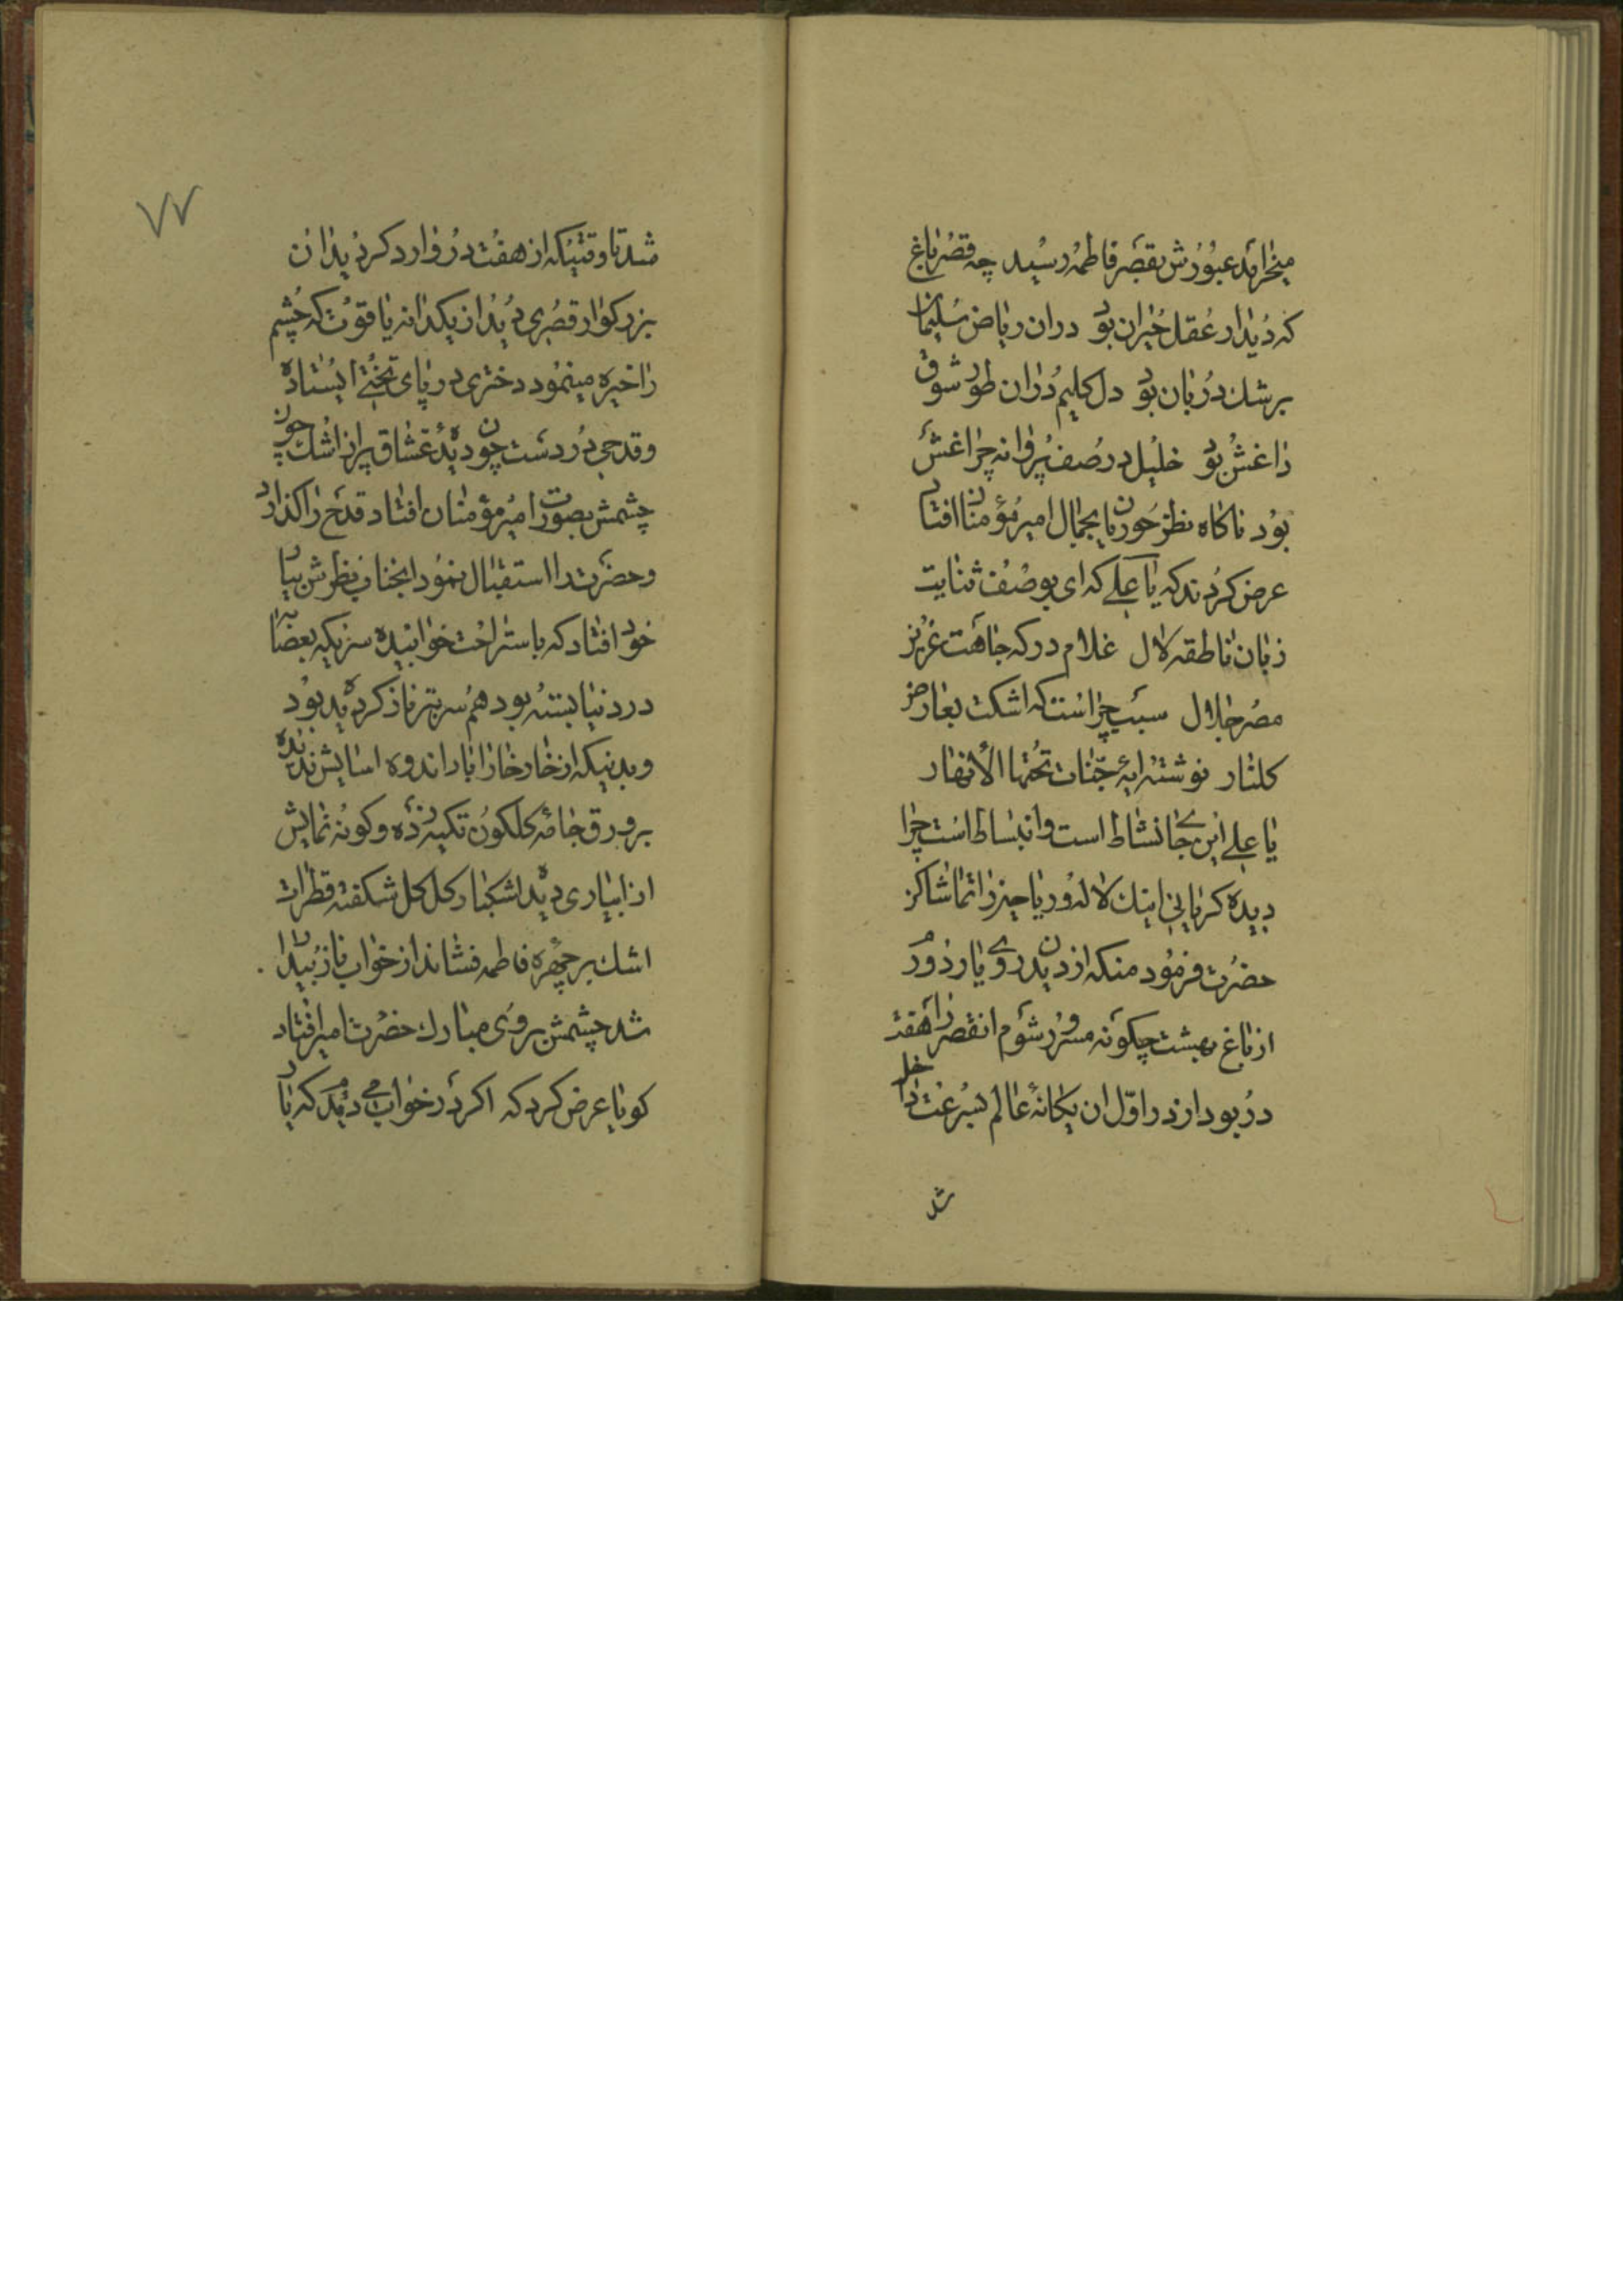 میخرامد عبورش بقصر فاطمه رسید چه قصر باغ
که دیدار عقل حیران بود دران ریاض سلیمان
برشك دربان بود دل کلیم دران طور شوق
داغش بود خلیل در صف پروانه چراغش
بود ناکاه نظر حوریان بجمال امیر مؤمنان افتاد
عرض کردند که یا علی که ای بوصف ثنایت
زبان ناطقه لال غلام درکه جاهت عزیز
مصر جلال سبب چراست که اشکت بعارض
کلنار نوشته ایهٔ جنات تحتها الأنهار
یا علی این جا نشاط است وانبساط است چرا
دیده کریانی اینك لاله و ریاحین را تماشا کن
حضرت فرمود منکه از دیدن روی یار دورم
از باغ بهشت چکونه مسرور شوم انقصر را هفت
در بود از در اول ان یکانهٔ عالم بسرعت داخل
شد
٧٧
شد تا وقتیکه از هفت در وارد کردید ان
بزرکوار قصری دید از یکدانه یاقوت که چشم
را خیره مینمود دختری در پای تختی ایستاده
وقدحی در دست چون دیدهٔ عشاق پر از اشك چون
چشمش بصورت امیر مؤمنان افتاد قدح را کذارد
وحضرت را استقبال نمود انجناب نظرش
خود افتاد که باستراحت خوابیده سریکه بعصابه
در دنیا بسته بود هم سر بستر ناز کردیده بود
وبدنیکه از خار خار ازار اندوه اسایش ندیده
بر ورق جامه کلکون تکیه زده وکونه نمایش
از ابیاری دیده اشکبار کل کل شکفته قطرات
اشك بر چهره فاطمه فشاند از خواب ناز بیدار
شد چشمش بروی مبارك حضرت امیر افتاد
کویا عرض کرد که اکر در خواب می دیدم که یار